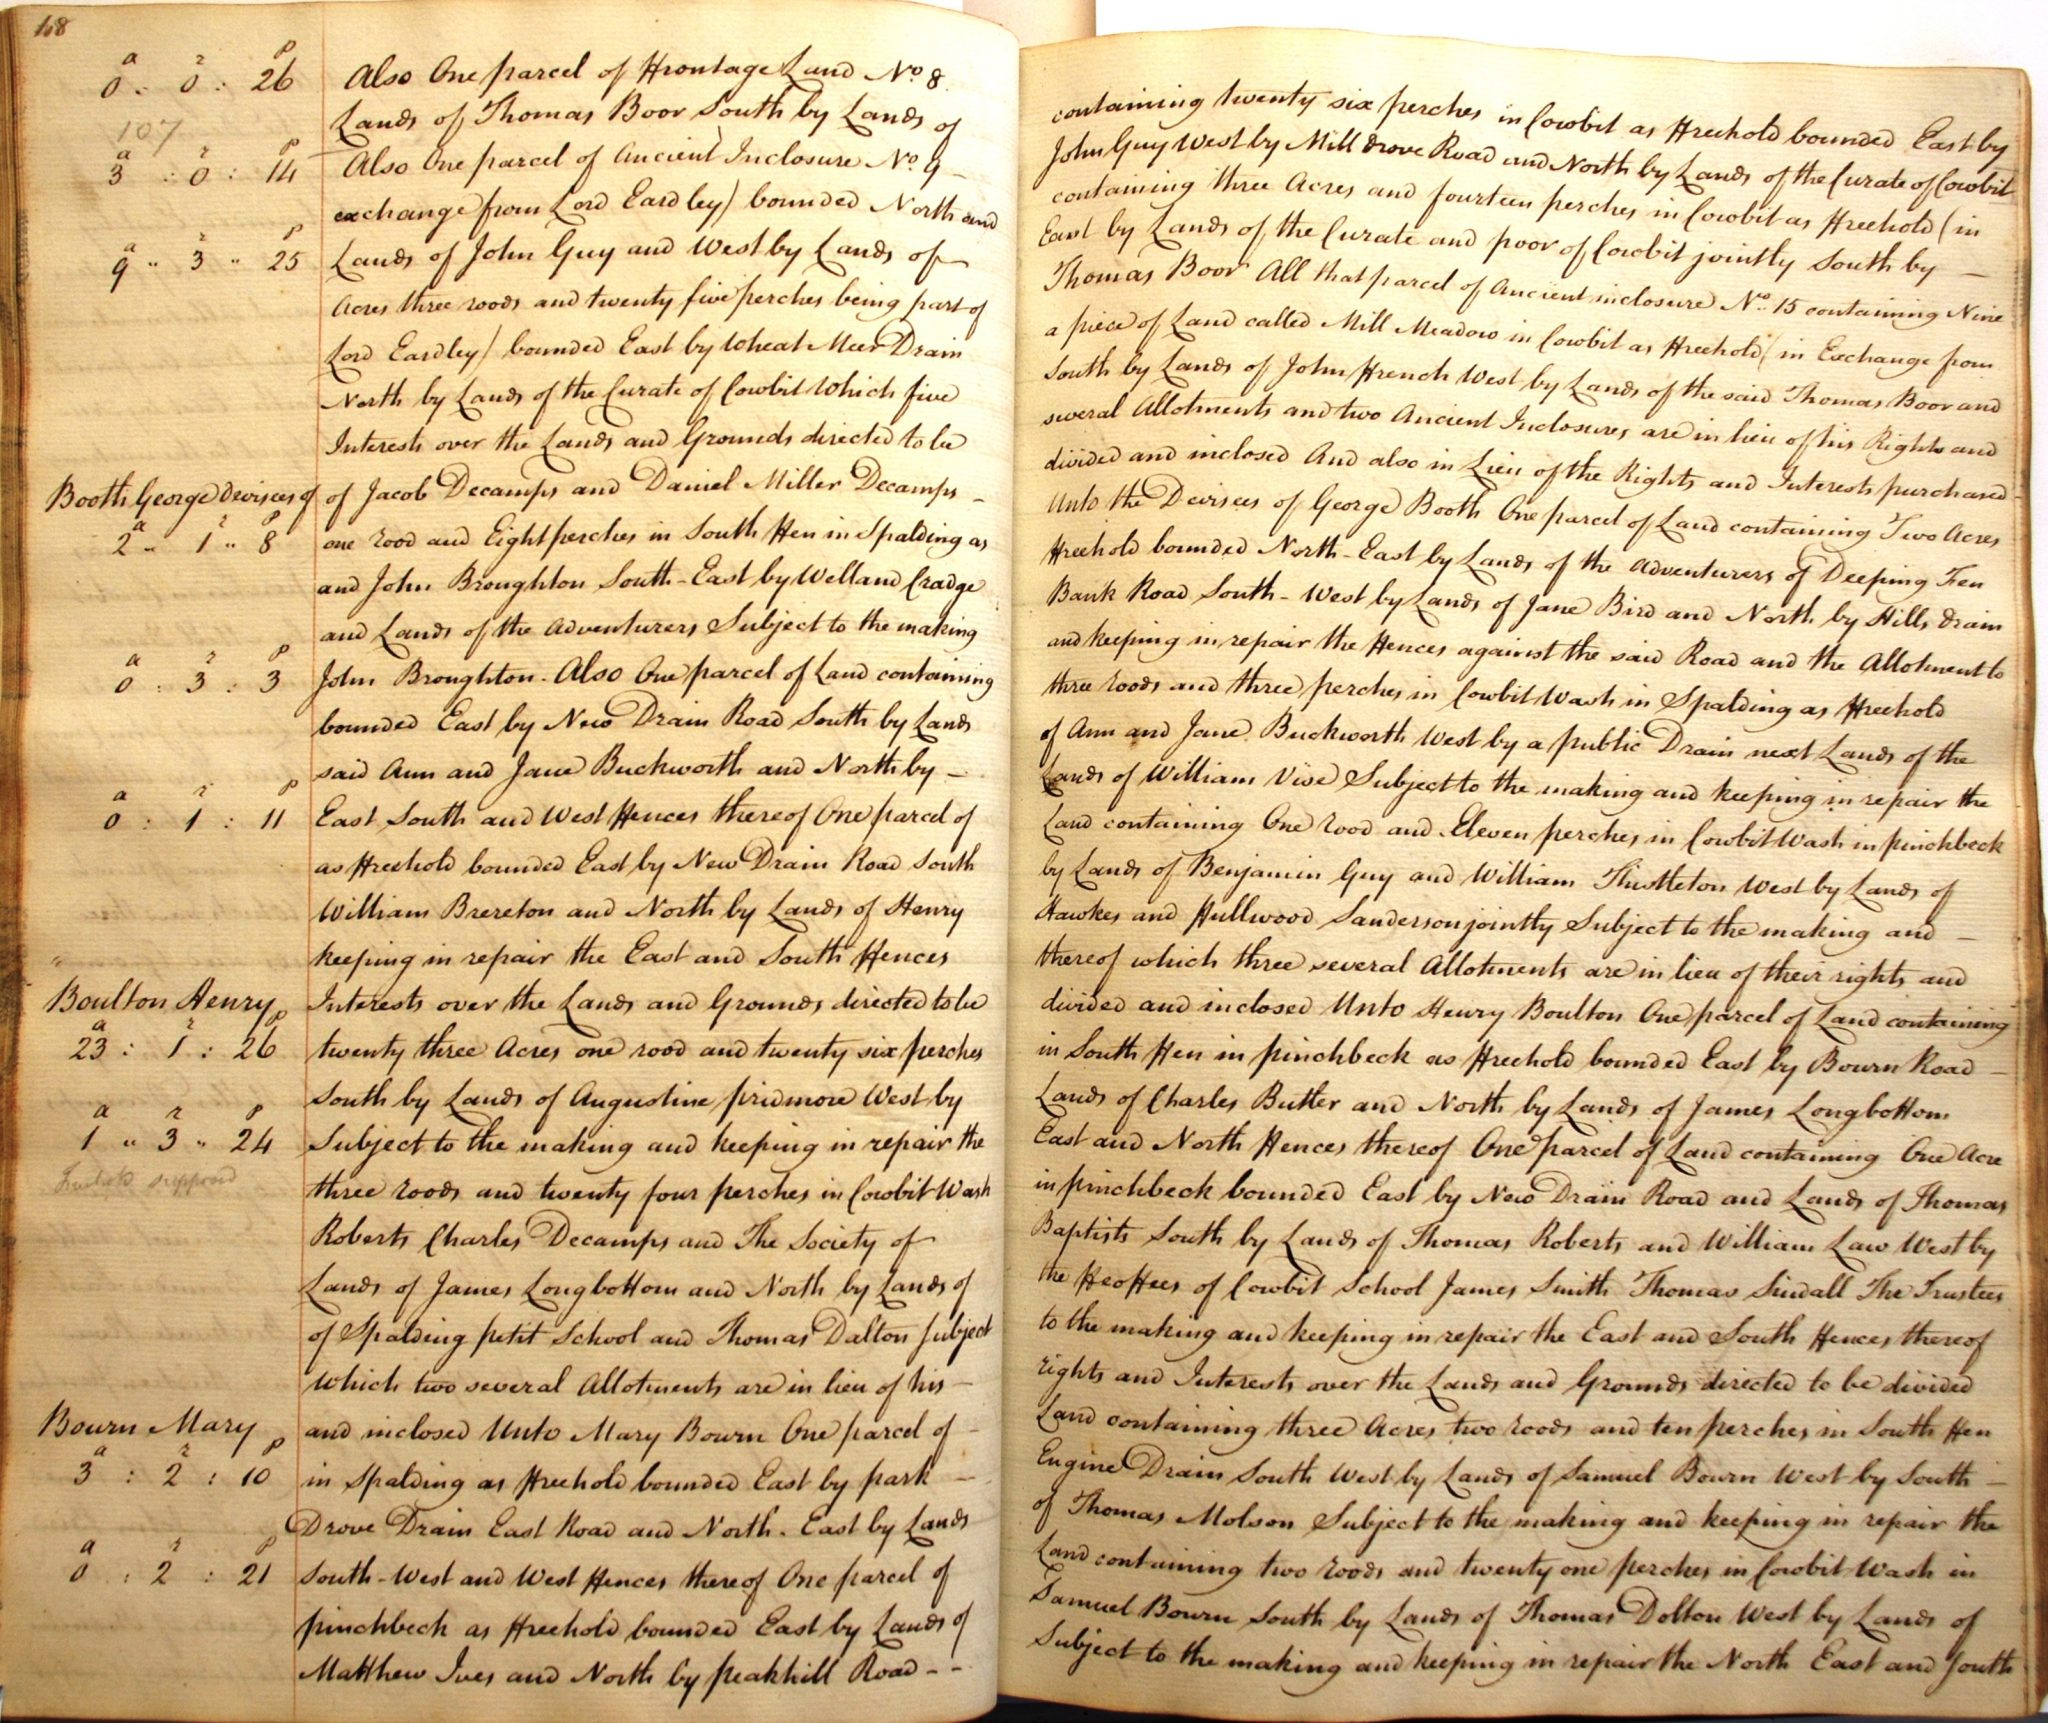 168
a r p
0 : 0 : 26 Also One parcel of Frontage Land No. 8 containing twenty six perches in Cowbit as Freehold bounded East by
107
Lands of Thomas Boor South by Lands of John Guy West by Mill drove Road and North by Lands of the Curate of Cowbit
a r p
3 : 0 : 14 Also One parcel of Ancient Inclosure No. 9 – containing three Acres and fourteen perches in Cowbit as Freehold (in
exchange from Lord Eardley) bounded North and East by Lands of the Curate and poor of Cowbit jointly South by –
a r p
9 " 3 " 25 Lands of John Guy and West by Lands of Thomas Boor All that parcel of Ancient inclosure No. 15 containing Nine
Acres three roods and twenty five perches being part of a piece of Land called Mill Meadow in Cowbit as Freehold (in Exchange from
Lord Eardley) bounded East by Wheat Meer Drain South by Lands of John French West by Lands of the said Thomas Boor and
North by Lands of the Curate of Cowbit Which five several Allotments and two Ancient Inclosures are in lieu of his Rights and
Interests over the Lands and Grounds directed to be divided and inclosed And also in Lieu of the Rights and Interests purchased
Booth George devisees of of Jacob Decamps and Daniel Miller Decamps – Unto the Devisees of George Booth One parcel of Land containing Two Acres
a r p
2 " 1 " 8 one rood and Eight perches in South Fen in Spalding as Freehold bounded North-East by Lands of the Adventurers of Deeping Fen
and John Broughton South-East by Welland Cradge Bank Road South-West by Lands of Jane Bird and North by Hills drain
and Lands of the Adventurers Subject to the making and keeping in repair the Fences against the said Road and the Allotment to
a r p
0 : 3 : 3 John Broughton. Also One parcel of Land containing three roods and three perches in Cowbit Wash in Spalding as Freehold
bounded East by New Drain Road South by Lands of Ann and Jane Buckworth West by a public Drain next Lands of the
said Ann and Jane Buckworth and North by – Lands of William Vise Subject to the making and keeping in repair the
a r p
0 : 1 : 11 East South and West Fences thereof One parcel of Land containing One rood and Eleven perches in Cowbit Wash in pinchbeck
as Freehold bounded East by New Drain Road South by Lands of Benjamin Guy and William Thistleton West by Lands of
William Brereton and North by Lands of Henry Hawkes and Fullwood Sanderson jointly Subject to the making and –
keeping in repair the East and South Fences thereof which three several Allotments are in lieu of their rights and
Boulton Henry Interests over the Lands and Grounds directed to be divided and inclosed Unto Henry Boulton One parcel of Land containing
a r p
23 : 1 : 26 twenty three Acres one rood and twenty six perches in South Fen in pinchbeck as Freehold bounded East by Bourn Road –
South by Lands of Augustine pridmore West by Lands of Charles Butler and North by Lands of James Longbottom
a r p
1 " 3 " 24 Subject to the making and keeping in repair the East and North Fences thereof One parcel of Land containing One Acre
Freehold supposed
three roods and twenty four perches in Cowbit Wash in pinchbeck bounded East by New Drain Road and Lands of Thomas
Roberts Charles Decamps and The Society of Baptists South by Lands of Thomas Roberts and William Law West by
Lands of James Longbottom and North by Lands of the Feoffees of Cowbit School James Smith Thomas Sindall The Trustees
of Spalding petit School and Thomas Dalton Subject to the making and keeping in repair the East and South Fences thereof
Which two several Allotments are in lieu of his – rights and Interests over the Lands and Grounds directed to be divided
Bourn Mary and inclosed Unto Mary Bourn One parcel of – Land containing three Acres two roods and ten perches in South Fen
a r p
3 : 2 : 10 in Spalding as Freehold bounded East by park – Engine Drain South West by Lands of Samuel Bourn West by South –
Drove Drain East Road and North-East by Lands of Thomas Molson Subject to the making and keeping in repair the
a r p
0 : 2 : 21 South-West and West Fences thereof One parcel of Land containing two roods and twenty one perches in Cowbit Wash in
pinchbeck as Freehold bounded East by Lands of Samuel Bourn South by Lands of Thomas Dolton West by Lands of
Matthew Ives and North by peakhill Road – – Subject to the making and keeping in repair the North East and South